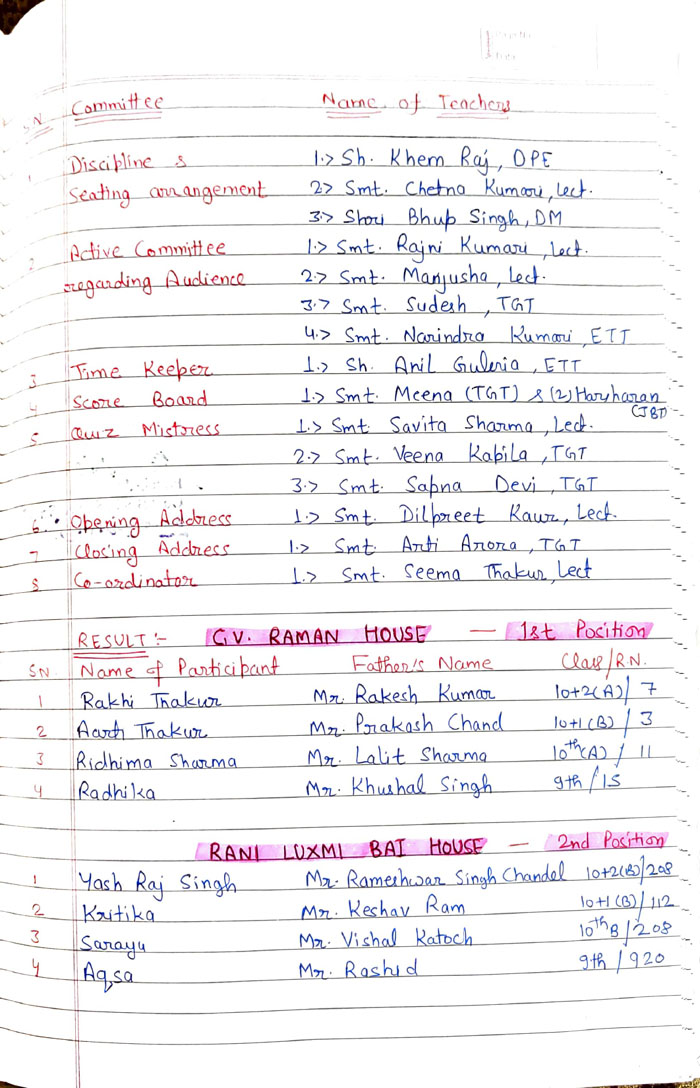 S.N. Committee Name of Teachers
1 Discipline & 1.> Sh. Khem Raj, DPE
Seating arrangement 2> Smt. Chetna Kumari, Lect.
3.> Shri Bhup Singh, DM
2 Active Committee 1.> Smt. Rajni Kumari, Lect.
regarding Audience 2.> Smt. Manjusha, Lect.
3.> Smt. Sudesh, TGT
4.> Smt. Narindra Kumari, ETT
3 Time Keeper 1.> Sh. Anil Guleria, ETT
4 Score Board 1.> Smt. Meena (TGT) & (2) Hariharan
(JBT)
5 Quiz Mistress 1.> Smt. Savita Sharma, Lect.
2.> Smt. Veena Kapila, TGT
3.> Smt. Sapna Devi, TGT
6 Opening Address 1.> Smt. Dilpreet Kaur, Lect.
7 Closing Address 1.> Smt. Arti Arora, TGT
8 Co-ordinator 1.> Smt. Seema Thakur, Lect
RESULT :- C.V. RAMAN HOUSE — 1st Position
SN. Name of Participant Father's Name Class/R.N.
1 Rakhi Thakur Mr. Rakesh Kumar 10+2(A)/7
2 Aarti Thakur Mr. Prakash Chand 10+1(B)/3
3 Ridhima Sharma Mr. Lalit Sharma 10th(A)/11
4 Radhika Mr. Khushal Singh 9th/15
RANI LUXMI BAI HOUSE — 2nd Position
1 Yash Raj Singh Mr. Rameshwar Singh Chandel 10+2(B)/208
2 Kritika Mr. Keshav Ram 10+1(B)/112
3 Sarayu Mr. Vishal Katoch 10th B/208
4 Aqsa Mr. Rashid 9th/920